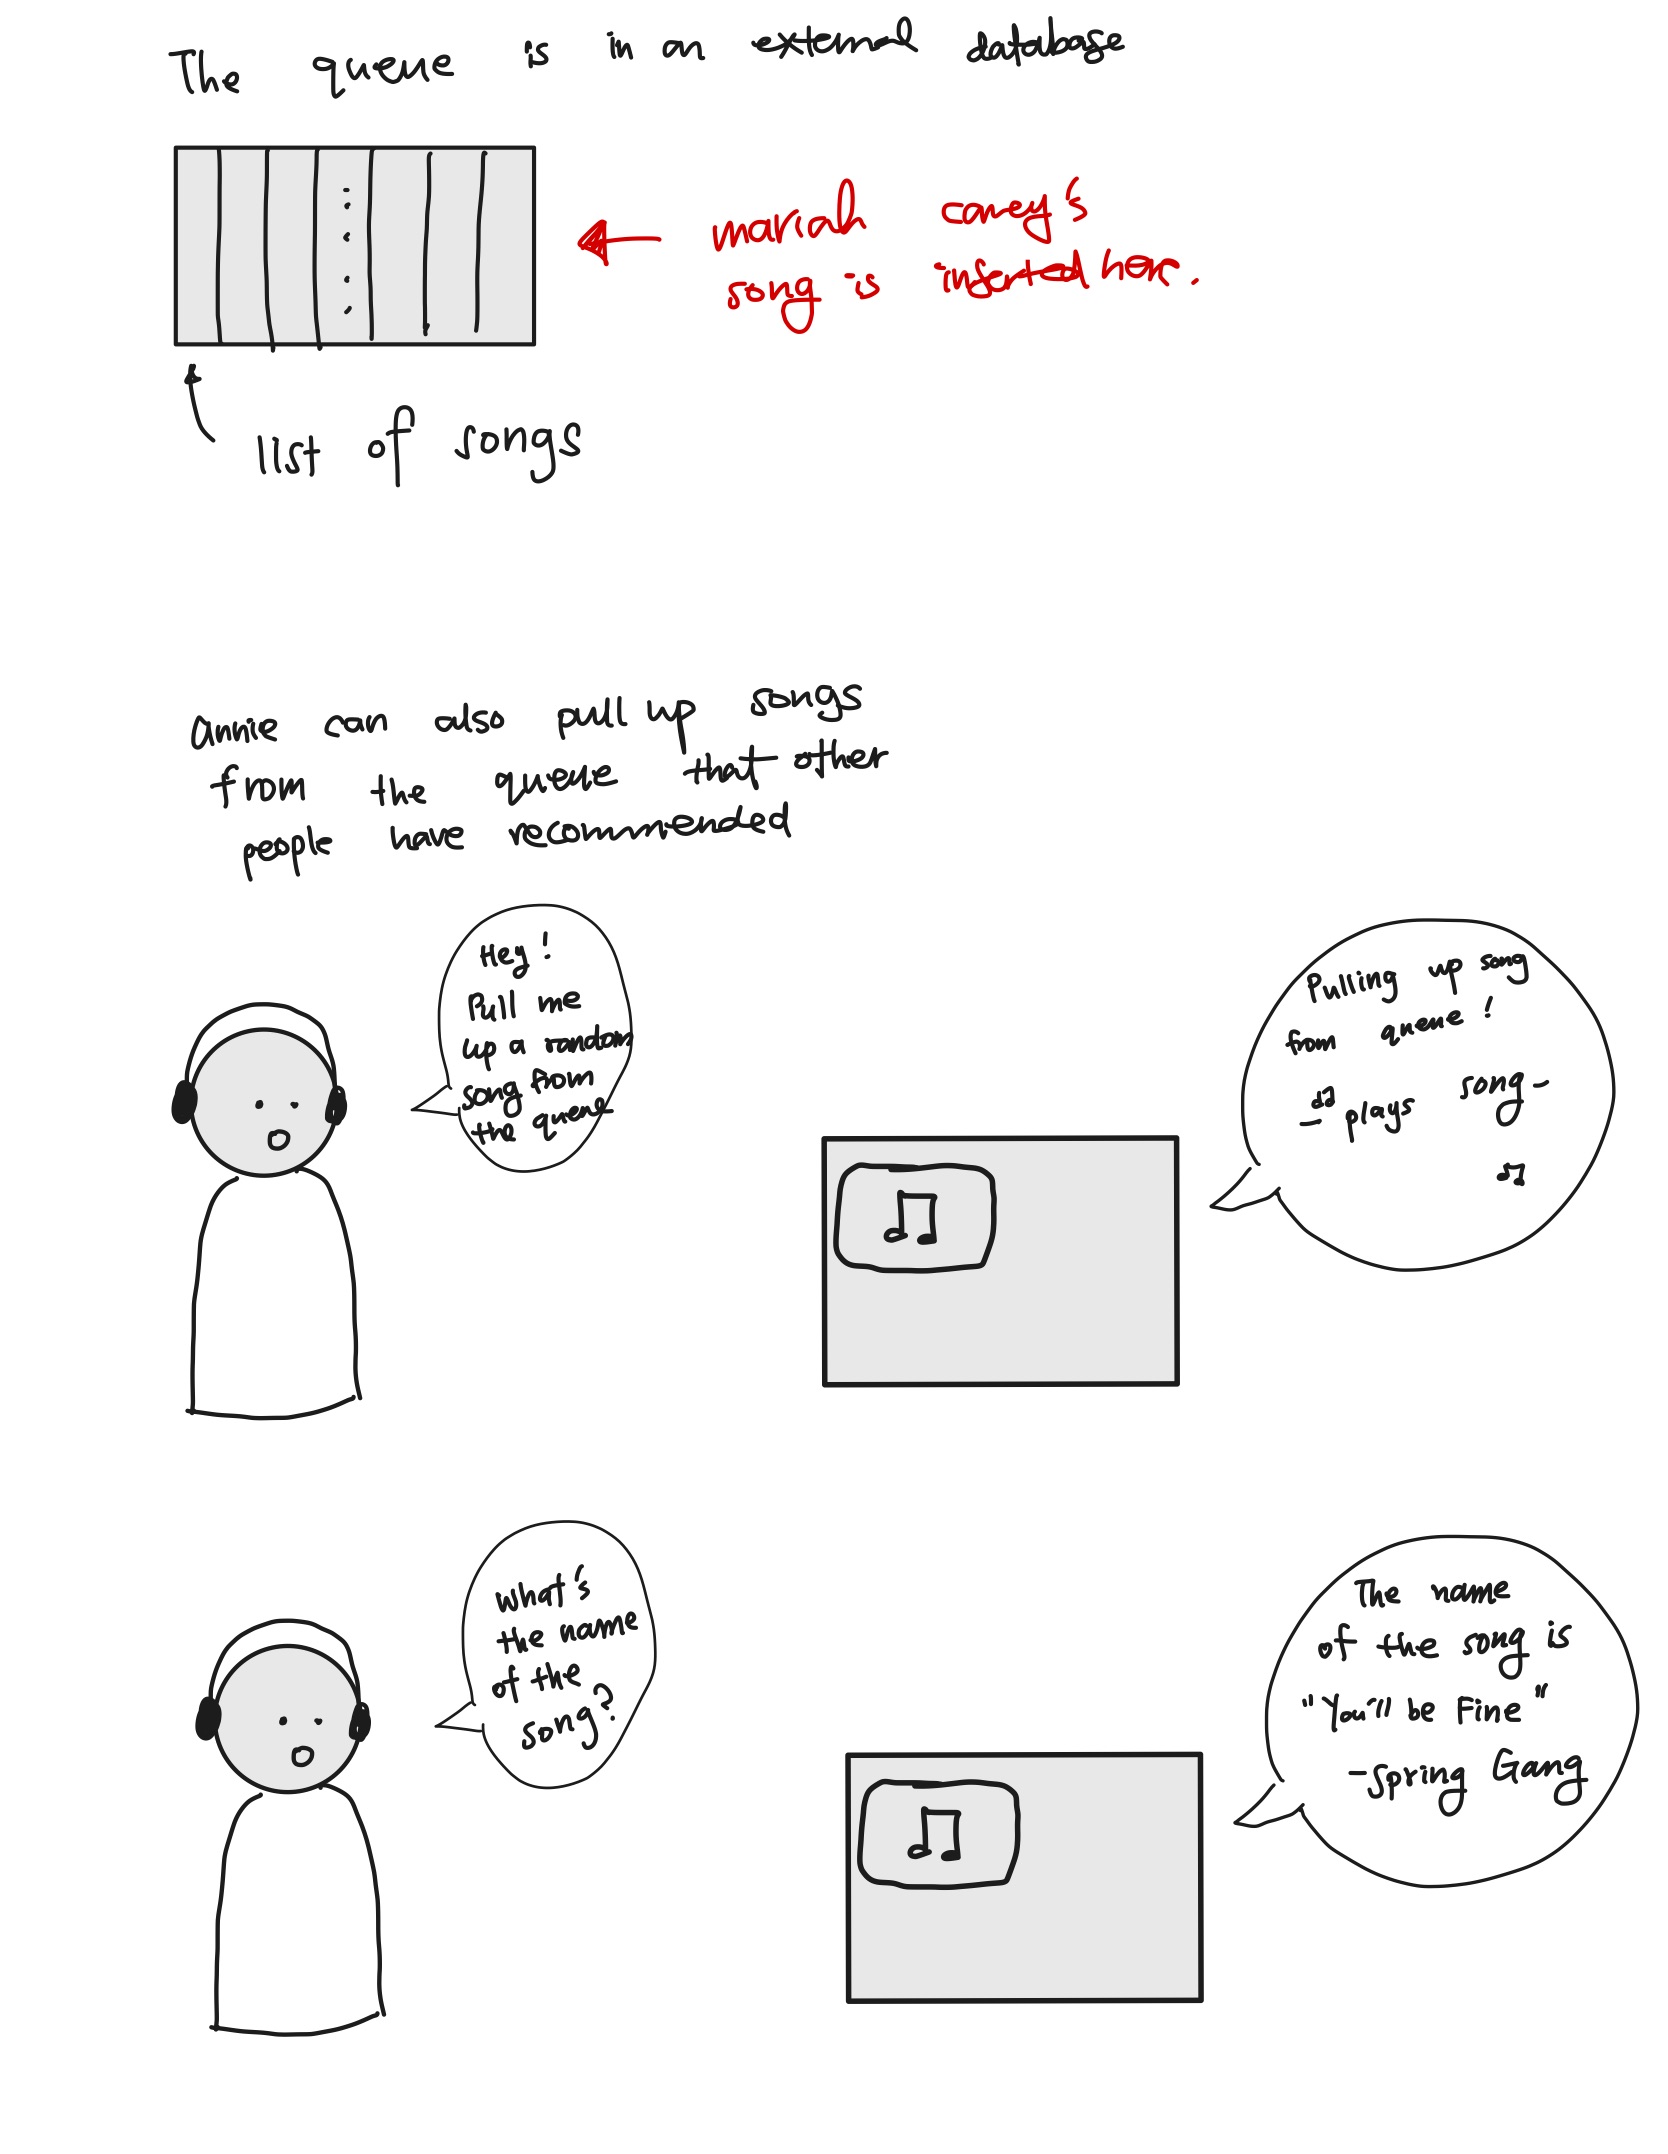 The queue is in an external database
mariah carey's
song is inserted here.
list of songs
annie can also pull up songs
from the queue that other
people have recommended
Hey!
Pull me
up a random
song from
the queue
Pulling up song
from queue!
- plays song -
What's
the name
of the
song?
The name
of the song is
"You'll be Fine"
- Spring Gang